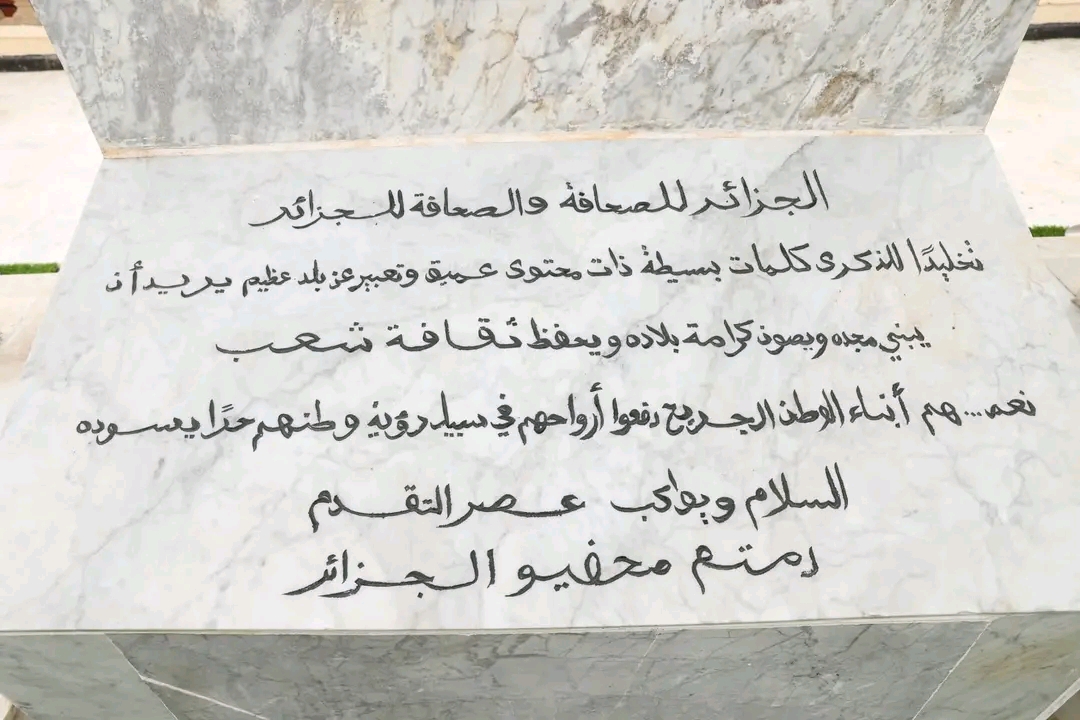 الجزائر للصحافة والصحافة للجزائر
تخليدًا للذكرى كلمات بسيطة ذات محتوى عميق وتعبير عن بلد عظيم يريد أن
يبني مجده ويصون كرامة بلاده ويحفظ ثقافة شعب
نعم... هم أبناء الوطن الجريح دفعوا أرواحهم في سبيل رؤية وطنهم حرًا يسوده
السلام ويواكب عصر التقدم
دمتم صحفيو الجزائر